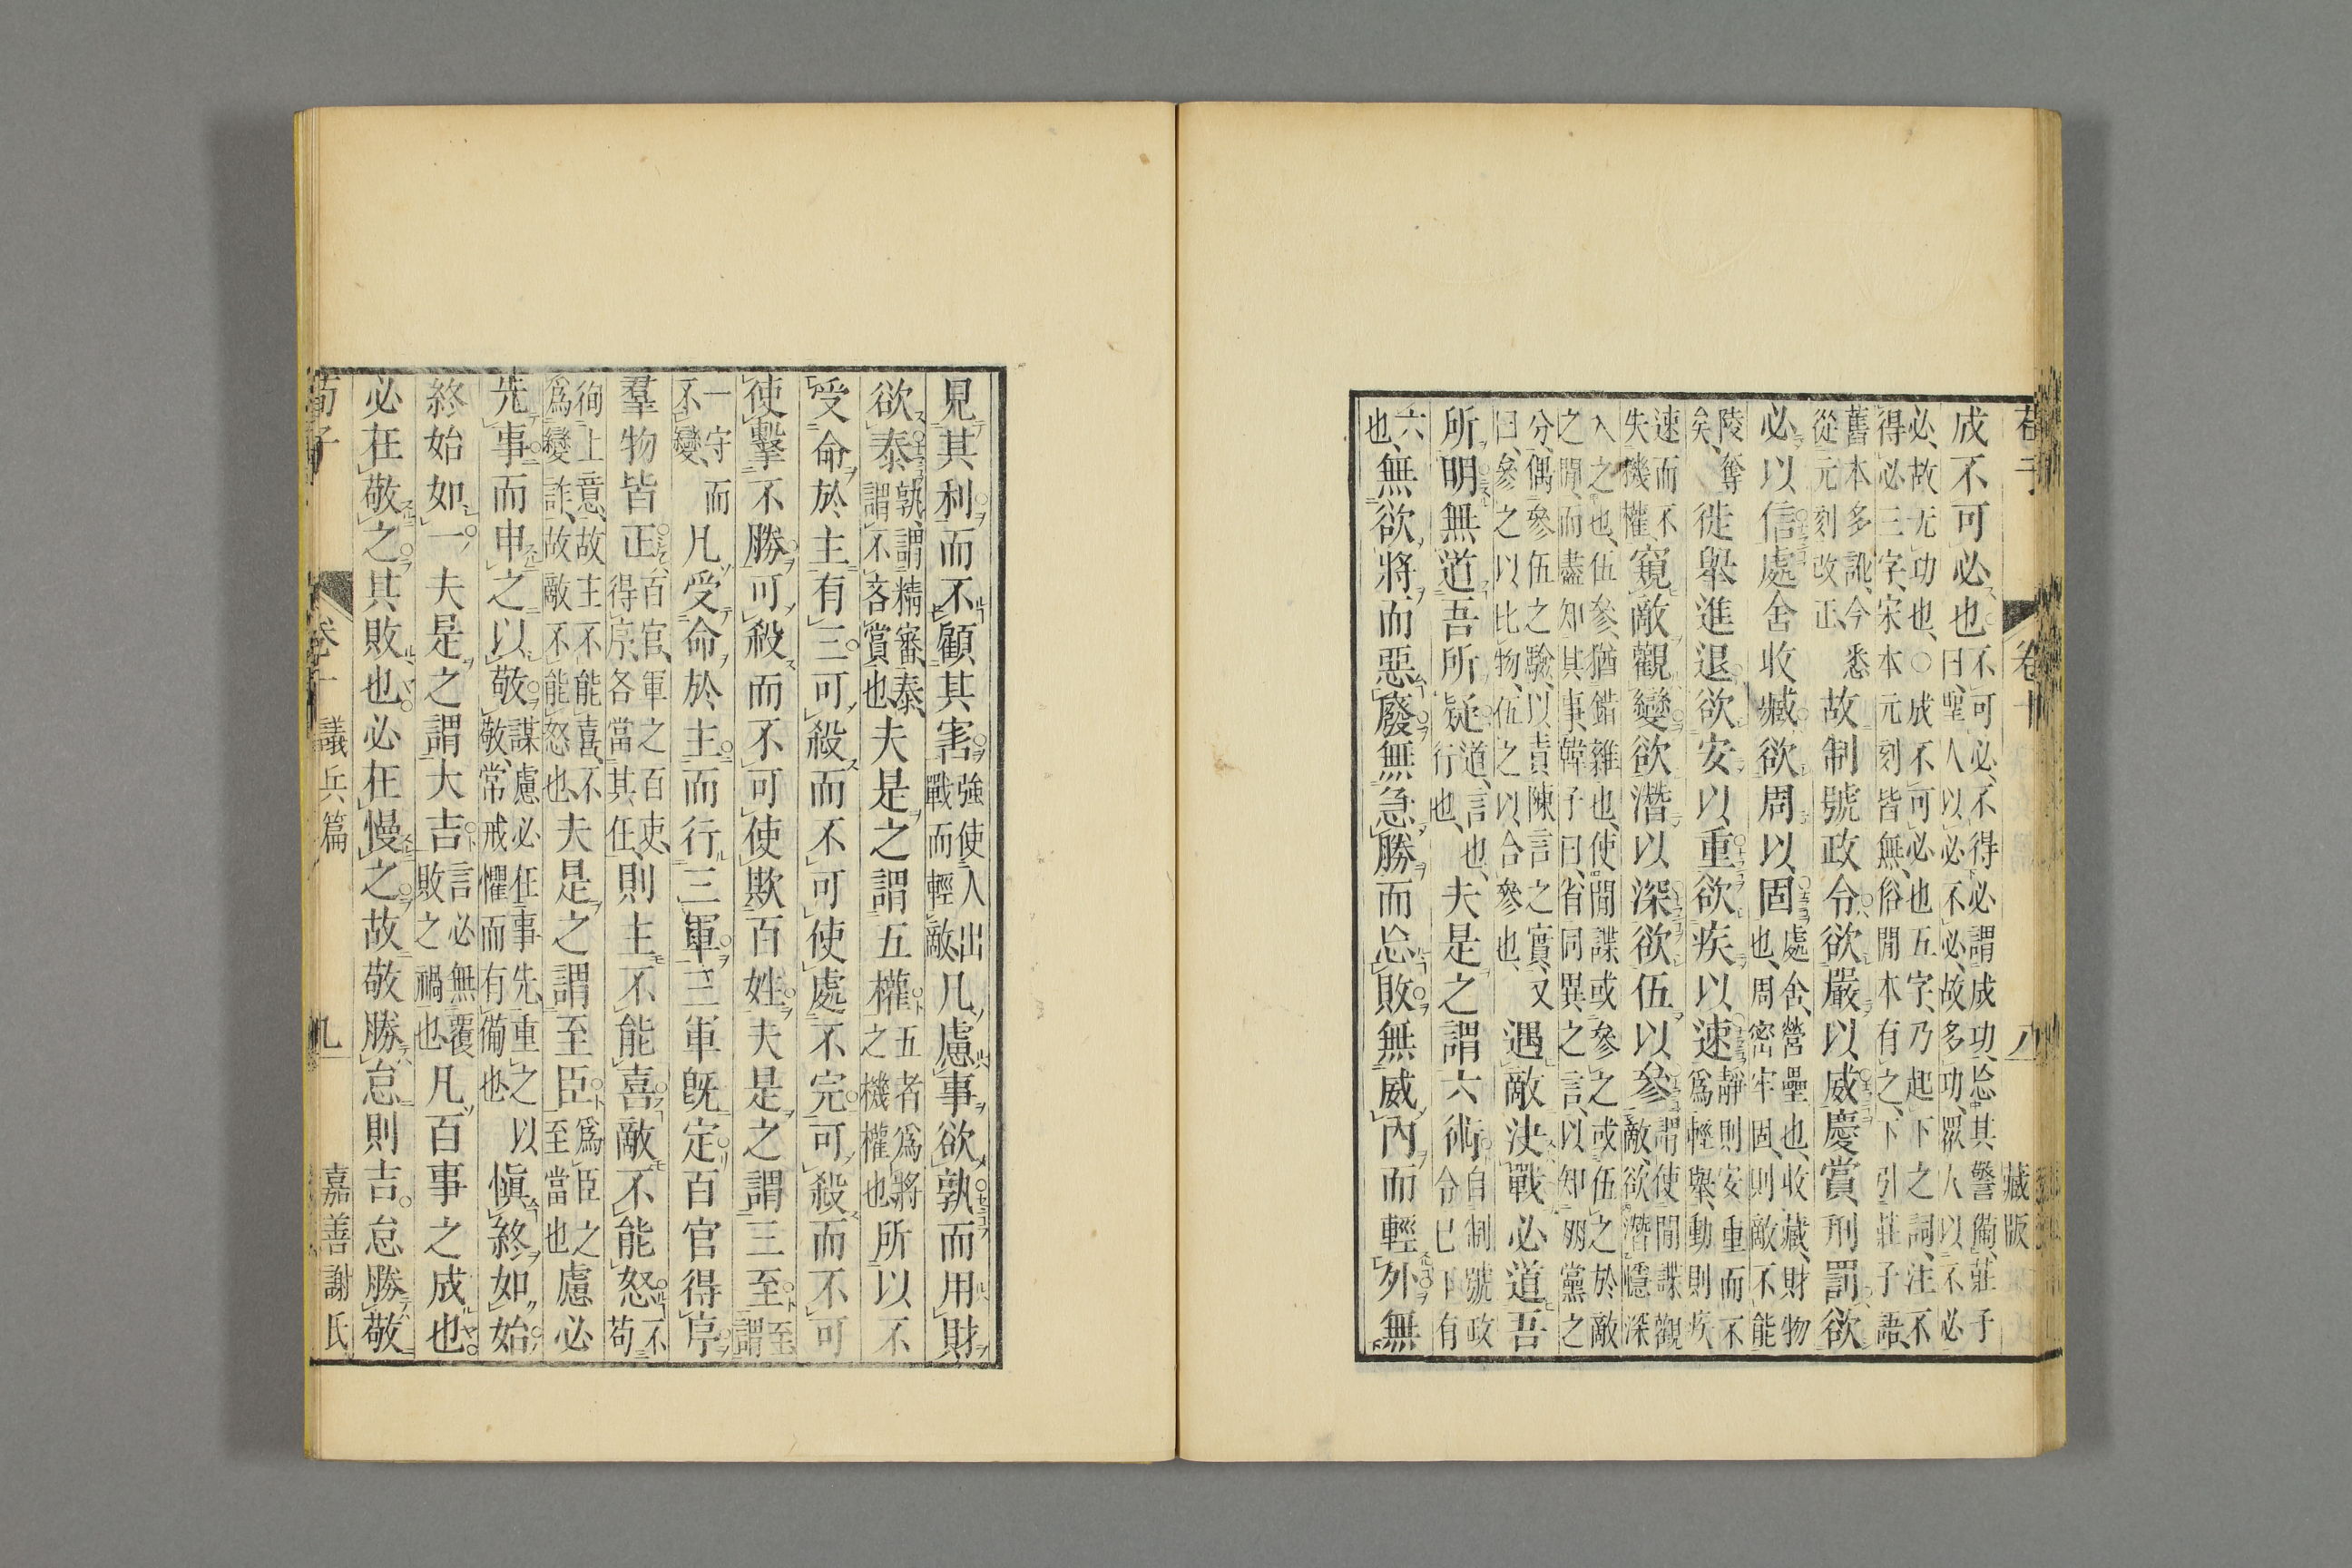 荀子　卷十　八　藏版
成不可必也不可必不得必謂成功忘其警備莊子曰聖人以必不必故多功眾人以不必
必故无功也○成不可必也五字乃起下之詞注不得必三字宋本元刻皆無俗閒本有之下引莊子語
舊本多訛今悉從元刻改正故制號政令欲嚴以威慶賞刑罰欲
必以信處舍收臧欲周以固處舍營壘也收藏財物也周密牢固則敵不能
陵奪矣徙舉進退欲安以重欲疾以速靜則安重而不爲輕舉動則疾
速而不失機權窺敵觀變欲潛以深欲伍以參謂使閒諜觀敵欲潛隱深
入之也伍參猶錯雜也使閒諜或參之或伍之於敵之閒而盡知其事韓子曰省同異之言以知朋黨之
分偶參伍之驗以責陳言之實又曰參之以比物伍之以合參也遇敵決戰必道吾
所明無道吾所疑道言也行也夫是之謂六術自制號政令已下有
六也無欲將而惡廢無急勝而忘敗無威內而輕外無
見其利而不顧其害強使人出戰而輕敵凡慮事欲孰而用財
欲泰孰謂精審泰謂不吝賞也夫是之謂五權五者爲將之機權也所以不
受命於主有三可殺而不可使處不完可殺而不可
使擊不勝可殺而不可使欺百姓夫是之謂三至至謂
一守而不變凡受命於主而行三軍三軍既定百官得序
羣物皆正百官軍之百吏得序各當其任則主不能喜敵不能怒不苟
徇上意故主不能喜不爲變詐故敵不能怒也夫是之謂至臣爲臣之至當也慮必
先事而申之以敬謀慮必在事先重之以敬常戒懼而有備也愼終如始
終始如一夫是之謂大吉言必無覆敗之禍也凡百事之成也
必在敬之其敗也必在慢之故敬勝怠則吉怠勝敬
荀子　卷十　議兵篇　九　嘉善謝氏